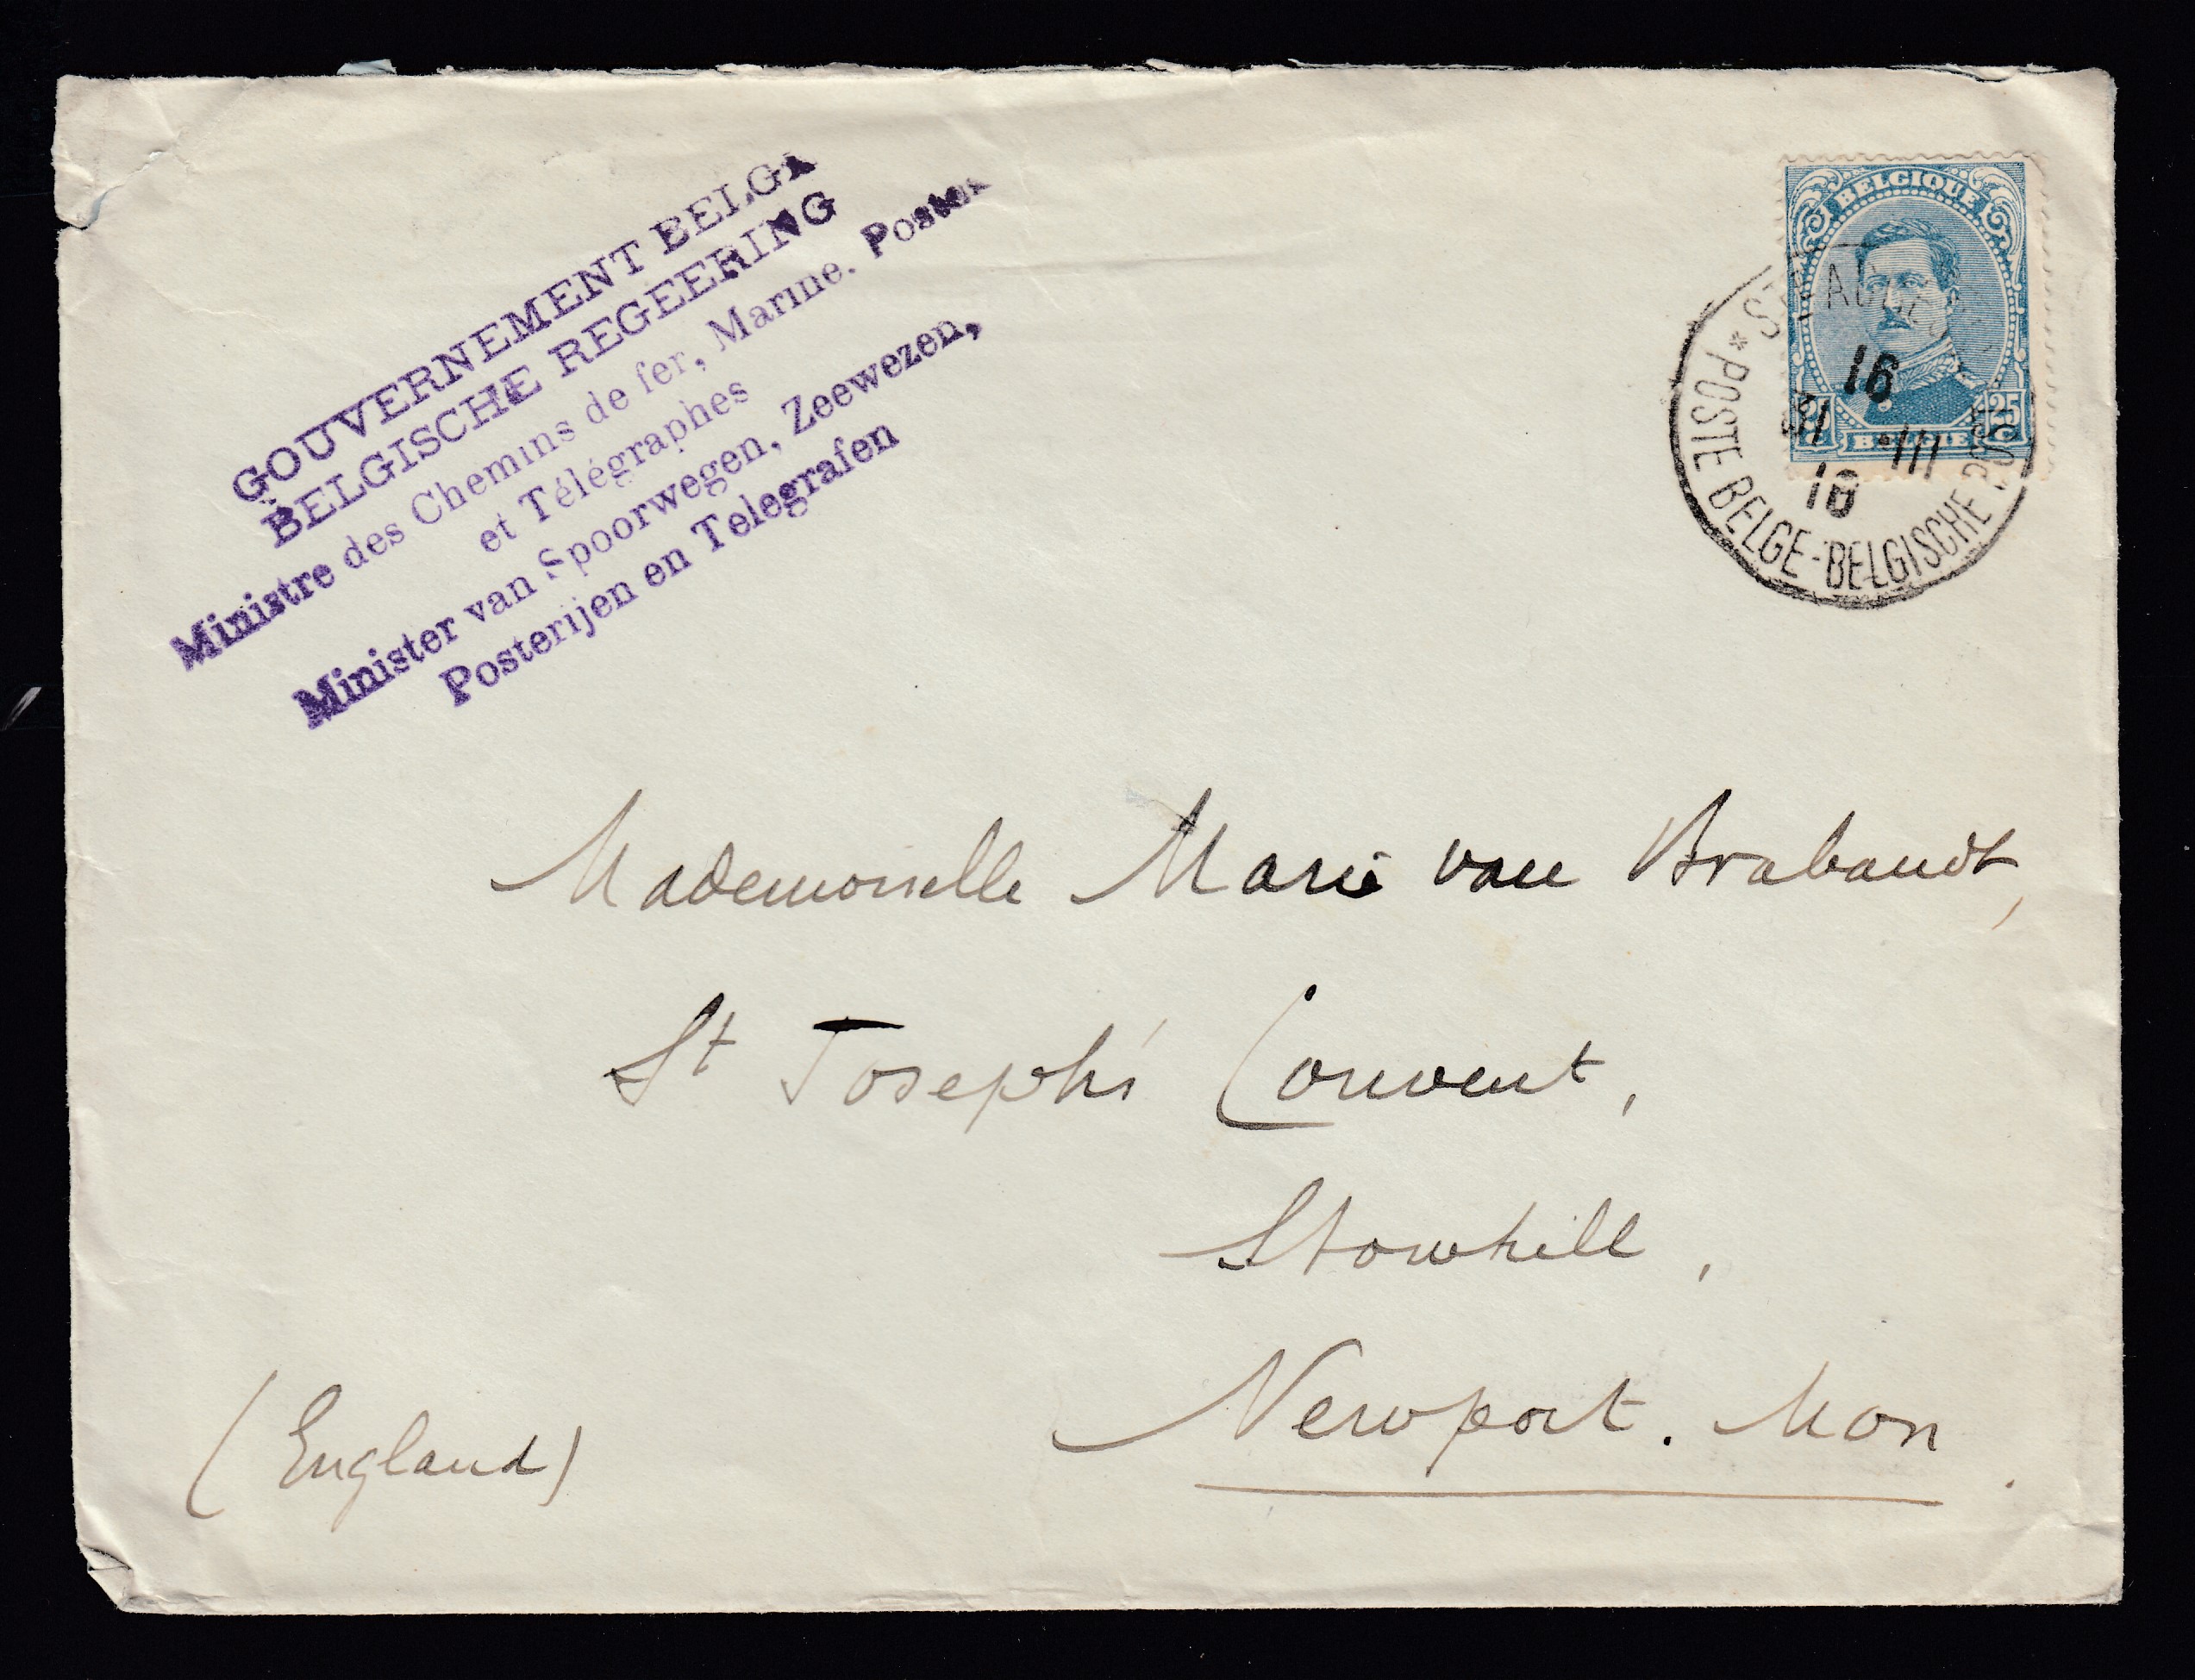 GOUVERNEMENT BELGE
BELGISCHE REGEERING
Ministre des Chemins de fer, Marine. Postes
et Télégraphes
Minister van Spoorwegen, Zeewezen,
Posterijen en Telegrafen
BELGIQUE
25 C
BELGIË
16
31 ·III
18
* POSTE BELGE-BELGISCHE
Mademoiselle Marie van Brabandt,
St Joseph's Convent,
Stowhill,
Newport. Mon.
(England)